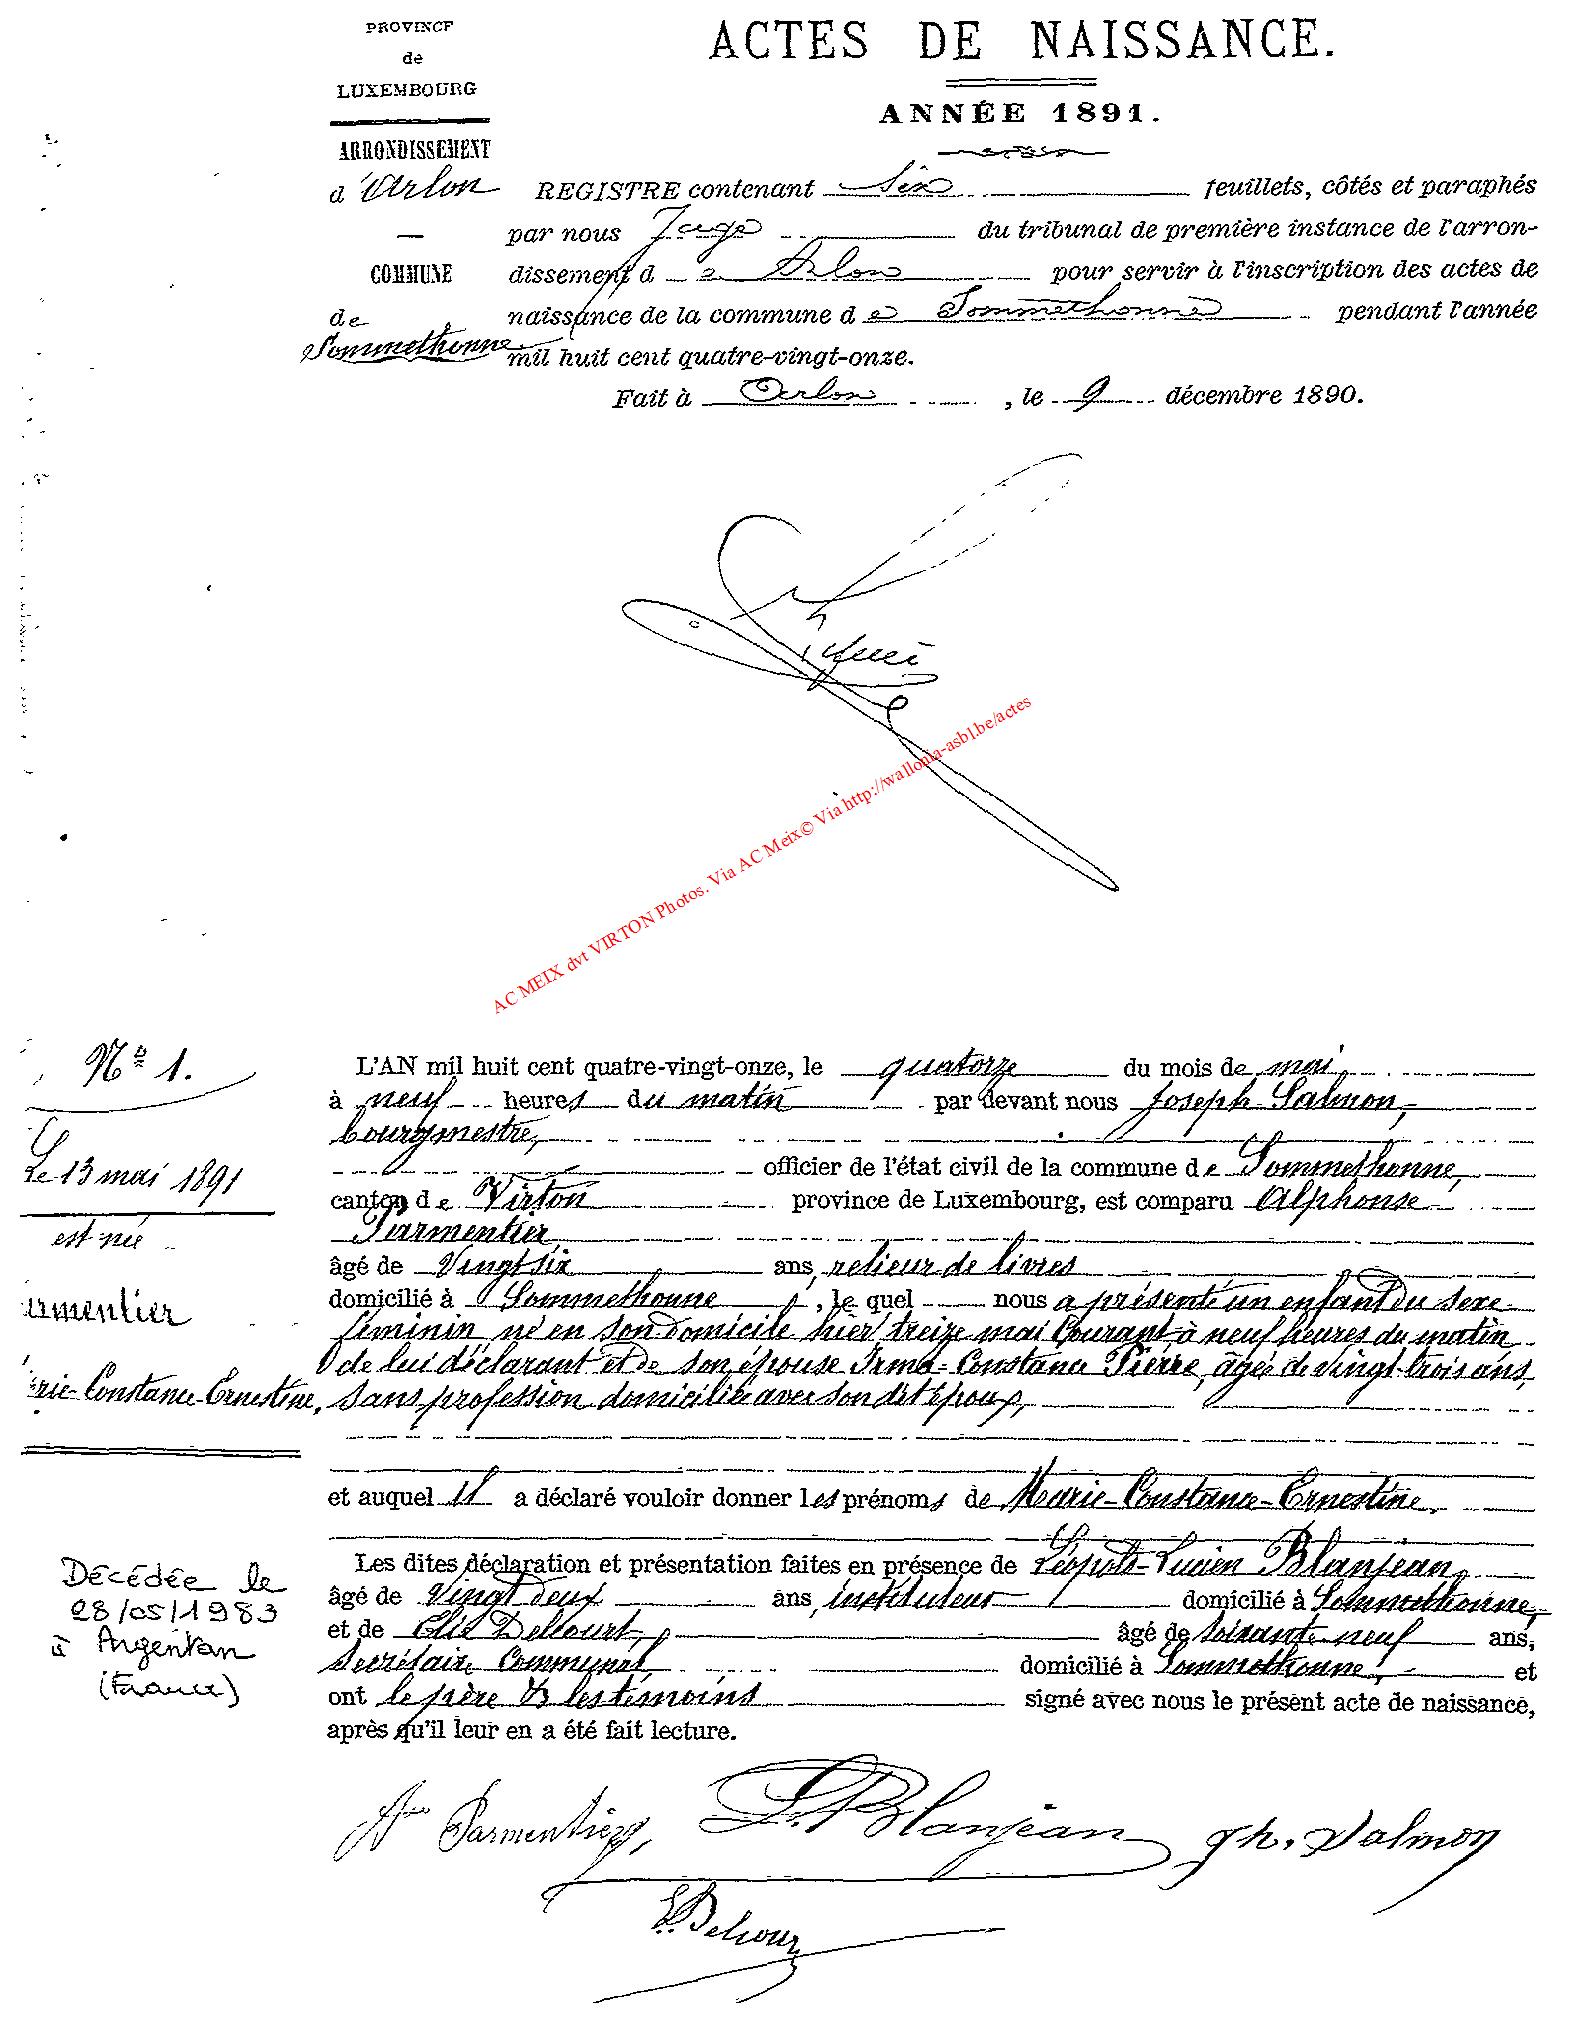 PROVINCE
de
LUXEMBOURG
ARRONDISSEMENT
d'Arlon
COMMUNE
de
Sommethonne
ACTES DE NAISSANCE.
ANNÉE 1891.
REGISTRE contenant Six feuillets, côtés et paraphés
par nous Juge du tribunal de première instance de l'arron-
dissement d e Arlon pour servir à l'inscription des actes de
naissance de la commune d e Sommethonne pendant l'année
mil huit cent quatre-vingt-onze.
Fait à Arlon, le 9 décembre 1890.
AC MEIX dvt VIRTON Photos. Via AC Meix© Via http://wallonia-asbl.be/actes
Nº 1.
Le 13 mai 1891
est née
armentier
rie-Constance-Ernestine,
Décédée le
28/05/1983
à Argentan
(France)
L'AN mil huit cent quatre-vingt-onze, le quatorze du mois de mai
à neuf heures du matin par devant nous Joseph Salmon,
bourgmestre,
officier de l'état civil de la commune de Sommethonne,
canton de Virton province de Luxembourg, est comparu Alphonse
Parmentier
âgé de Vingt six ans, relieur de livres
domicilié à Sommethonne, le quel nous a présenté un enfant du sexe
féminin né en son domicile hier treize mai courant à neuf heures du matin
de lui déclarant et de son épouse Irma-Constance Pierre, âgée de vingt-trois ans,
sans profession domiciliée avec son dit époux,
et auquel il a déclaré vouloir donner les prénoms de Marie-Constance-Ernestine.
Les dites déclaration et présentation faites en présence de Léopold-Lucien Blanjean,
âgé de Vingt deux ans, instituteur domicilié à Sommethonne,
et de Elie Delcourt, âgé de soixante-neuf ans,
Secrétaire Communal, domicilié à Sommethonne, et
ont le père & les témoins signé avec nous le présent acte de naissance,
après qu'il leur en a été fait lecture.
Parmentier, L. Blanjean Jh. Salmon
E. Delcour